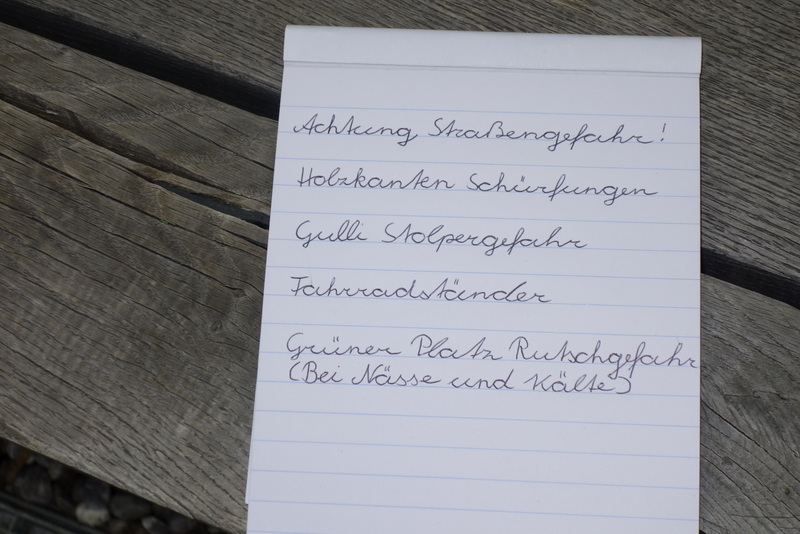 Achtung Straßengefahr!
Holzkanten Schürfungen
Gulli Stolpergefahr
Fahrradständer
Grüner Platz Rutschgefahr
(Bei Nässe und Kälte)